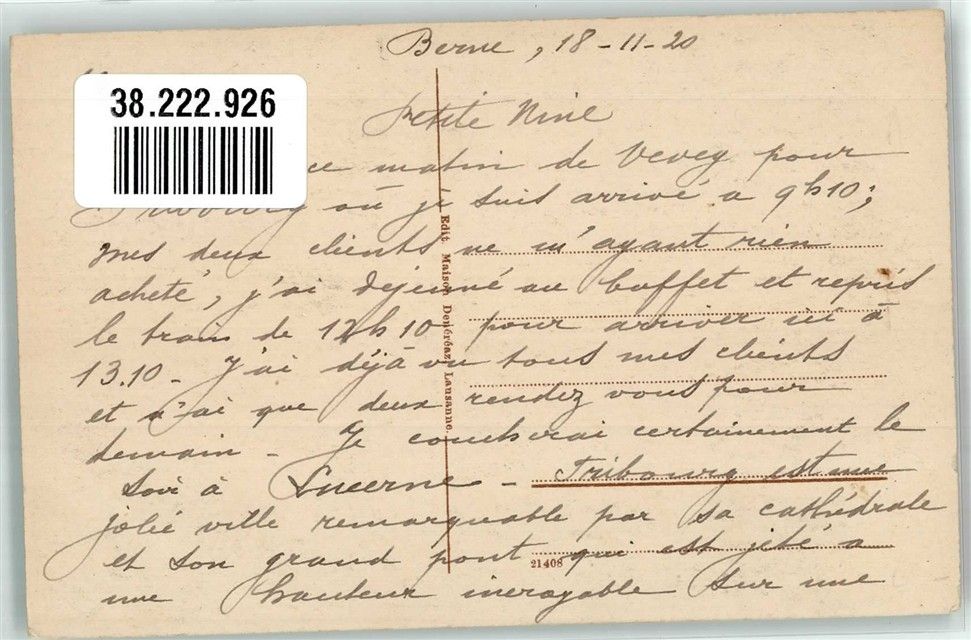 Berne, 18-11-20
38.222.926
Petite Nine
ce matin de Vevey pour
Fribourg où je suis arrivé à 9h10;
mes deux clients ne m'ayant rien
acheté, j'ai déjeuné au buffet et repris
le train de 12h10 pour arriver ici à
13.10 - J'ai déjà vu tous mes clients
et n'ai que deux rendez vous pour
demain - Je coucherai certainement le
soir à Lucerne - Fribourg est une
jolie ville remarquable par sa cathédrale
et son grand pont qui est jeté à
une hauteur incroyable sur une
Edit. Maison Denéréaz, Lausanne.
21408